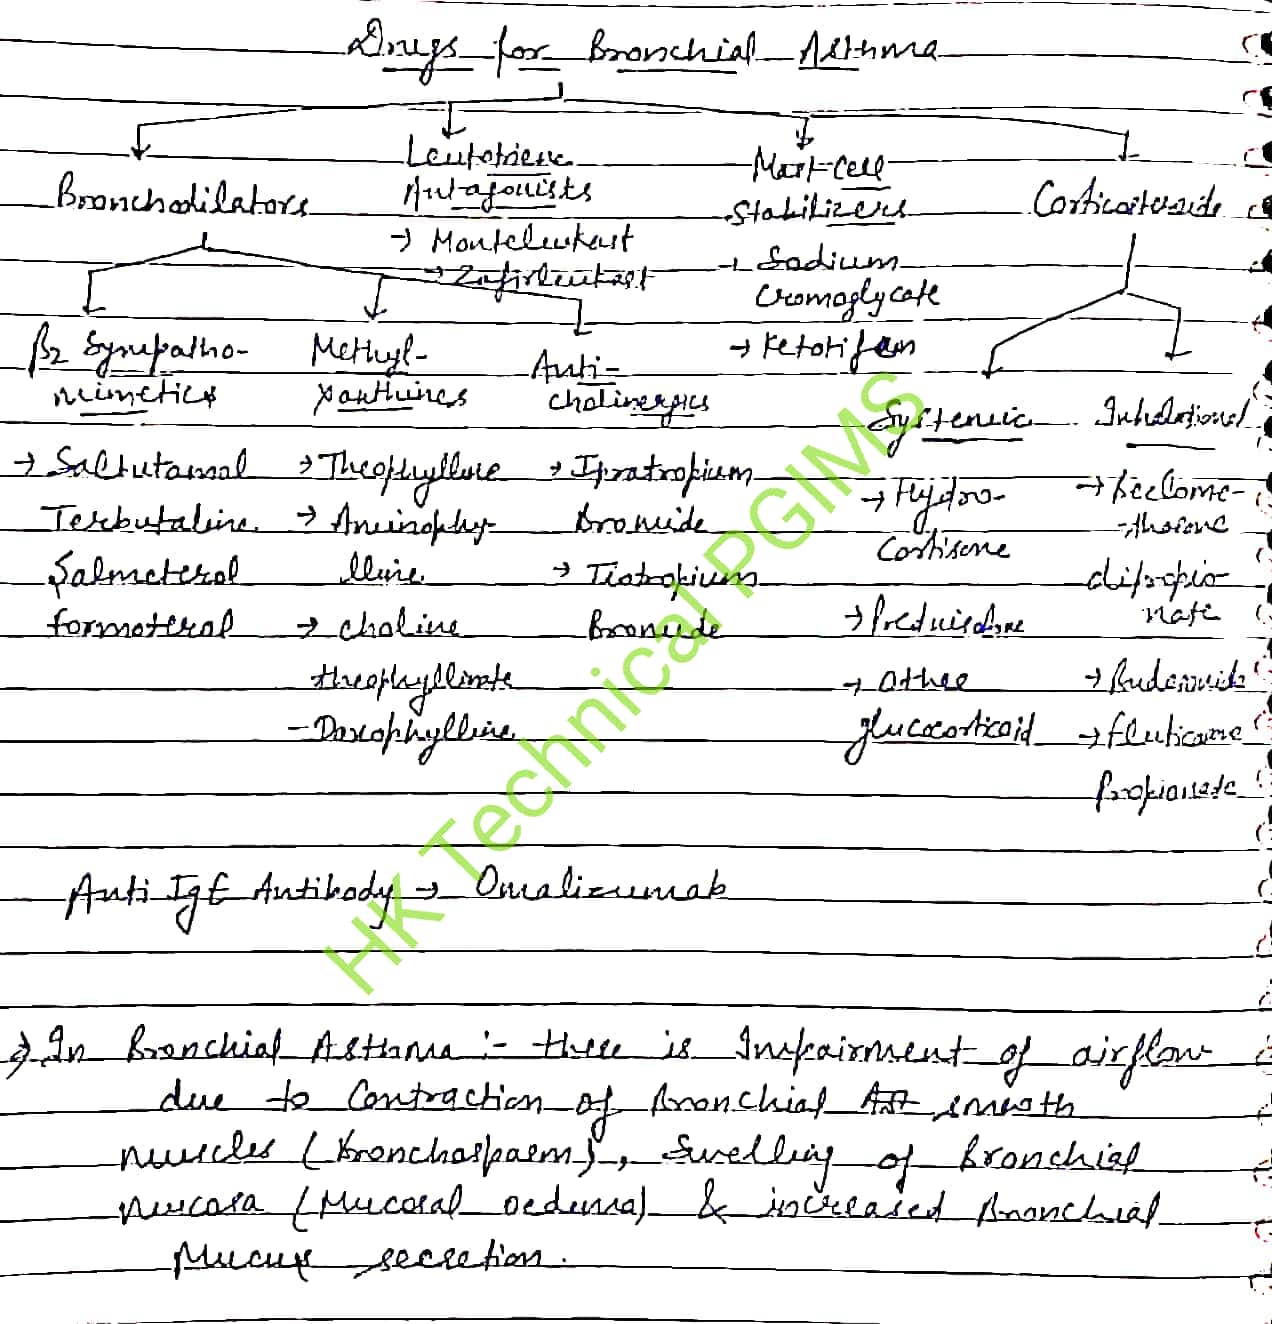 Drugs for Bronchial Asthma
Bronchodilators
Leukotriene
Antagonists
→ Montelukast
→ Zafirlukast
Mast-cell
Stabilizers
→ Sodium
Cromoglycate
→ Ketotifen
Corticosteroids
β2 Sympatho-
mimetics
→ Salbutamol
Terbutaline
Salmeterol
formoterol
Methyl-
xanthines
→ Theophylline
→ Aminophy-
lline
→ choline
theophyllinate
- Doxophylline
Anti-
cholinergics
→ Ipratropium
Bromide
→ Tiotropium
Bromide
Systemic
→ Hydro-
Cortisone
→ Prednisolone
→ other
glucocorticoid
Inhalational
→ Beclome-
-thasone
dipropio-
nate
→ Budesonide
→ fluticasone
Propionate
Anti IgE Antibody → Omalizumab
→ In Bronchial Asthma :- there is Impairment of airflow
due to Contraction of Bronchial smooth
muscles (Bronchospasm), Swelling of Bronchial
mucosa (Mucosal oedema) & increased Bronchial
Mucus secretion.
HK Technical PGIMS